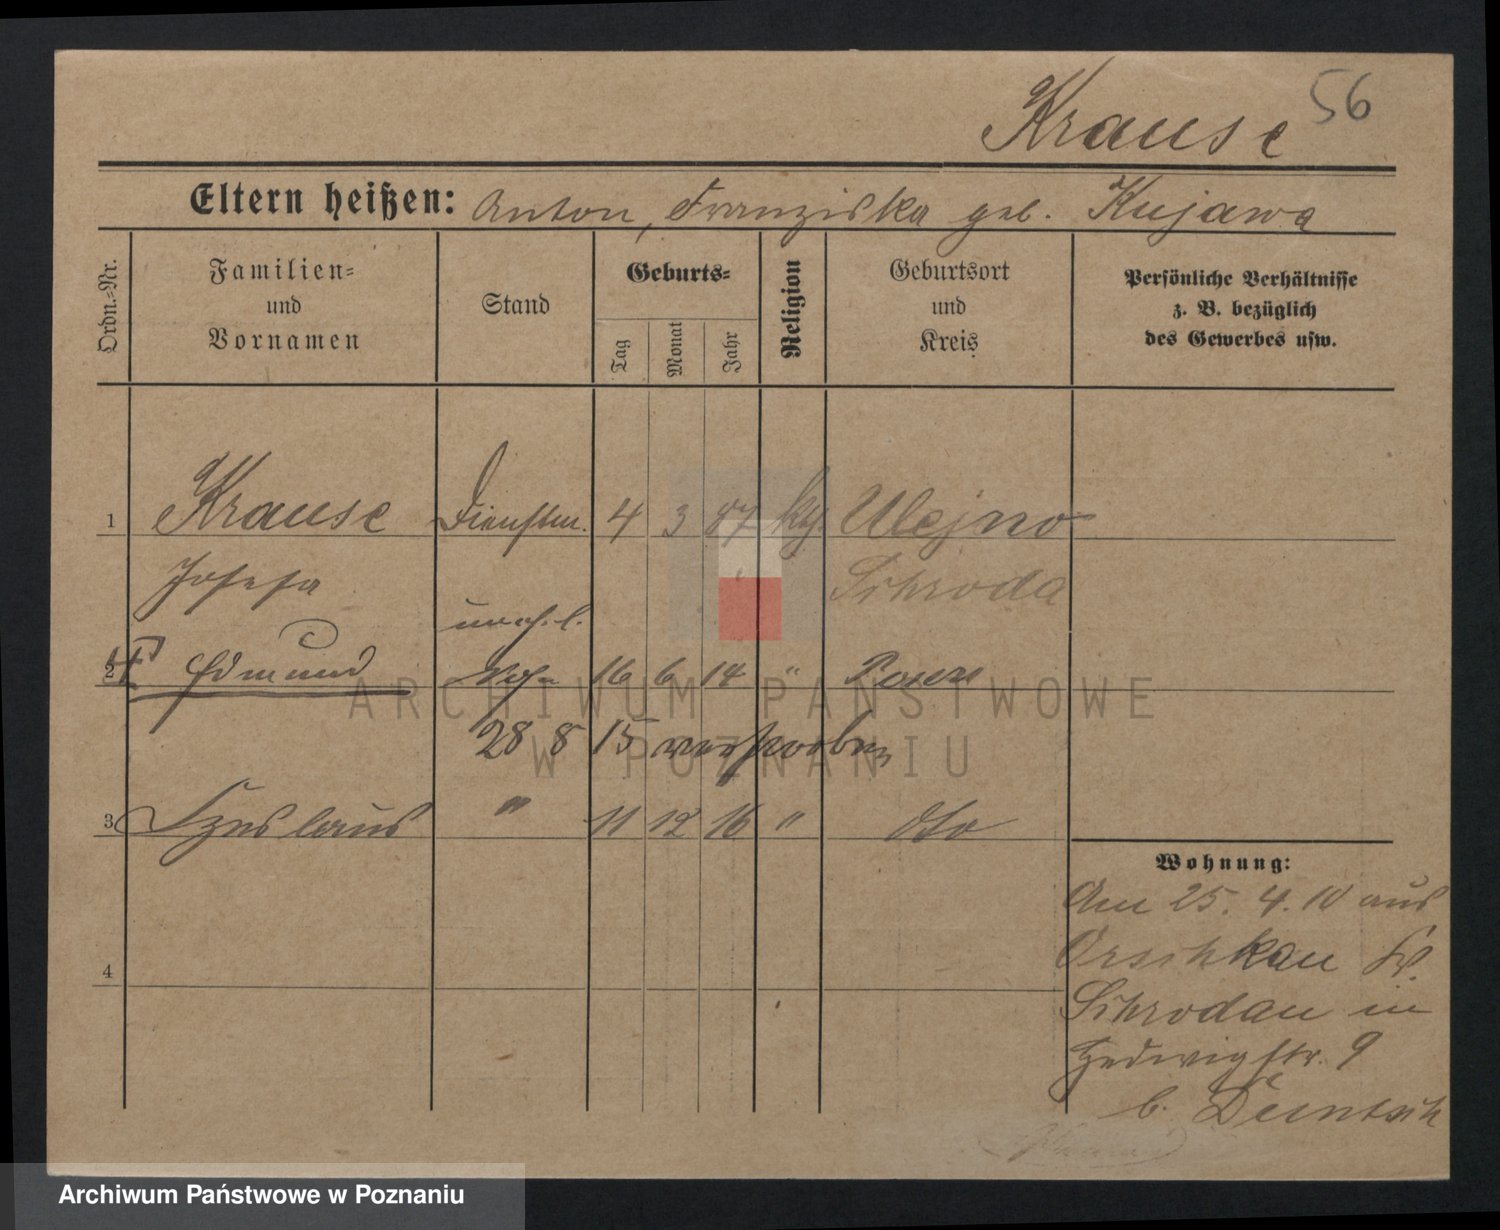 56
Krause
Eltern heißen: Anton, Franziska geb. Kujawa
Ordn.-Nr.
Familien-
und
Vornamen
Stand
Geburts-
Tag
Monat
Jahr
Religion
Geburtsort
und
Kreis
Persönliche Verhältnisse
z. B. bezüglich
des Gewerbes usw.
1 Krause Dienstm. 4 3 87 kth. Ulejno
Josefa Schroda
unehl.
2 Edmund Sohn 16 6 14 " Posen
28 8 15 verstorben
3 Czeslaus " 11 12 16 " dto
4
Wohnung:
Am 25. 4. 10 aus
Kr.
Schroda in
Hedwigstr. 9
b.
ARCHIWUM PAŃSTWOWE
W POZNANIU
Archiwum Państwowe w Poznaniu